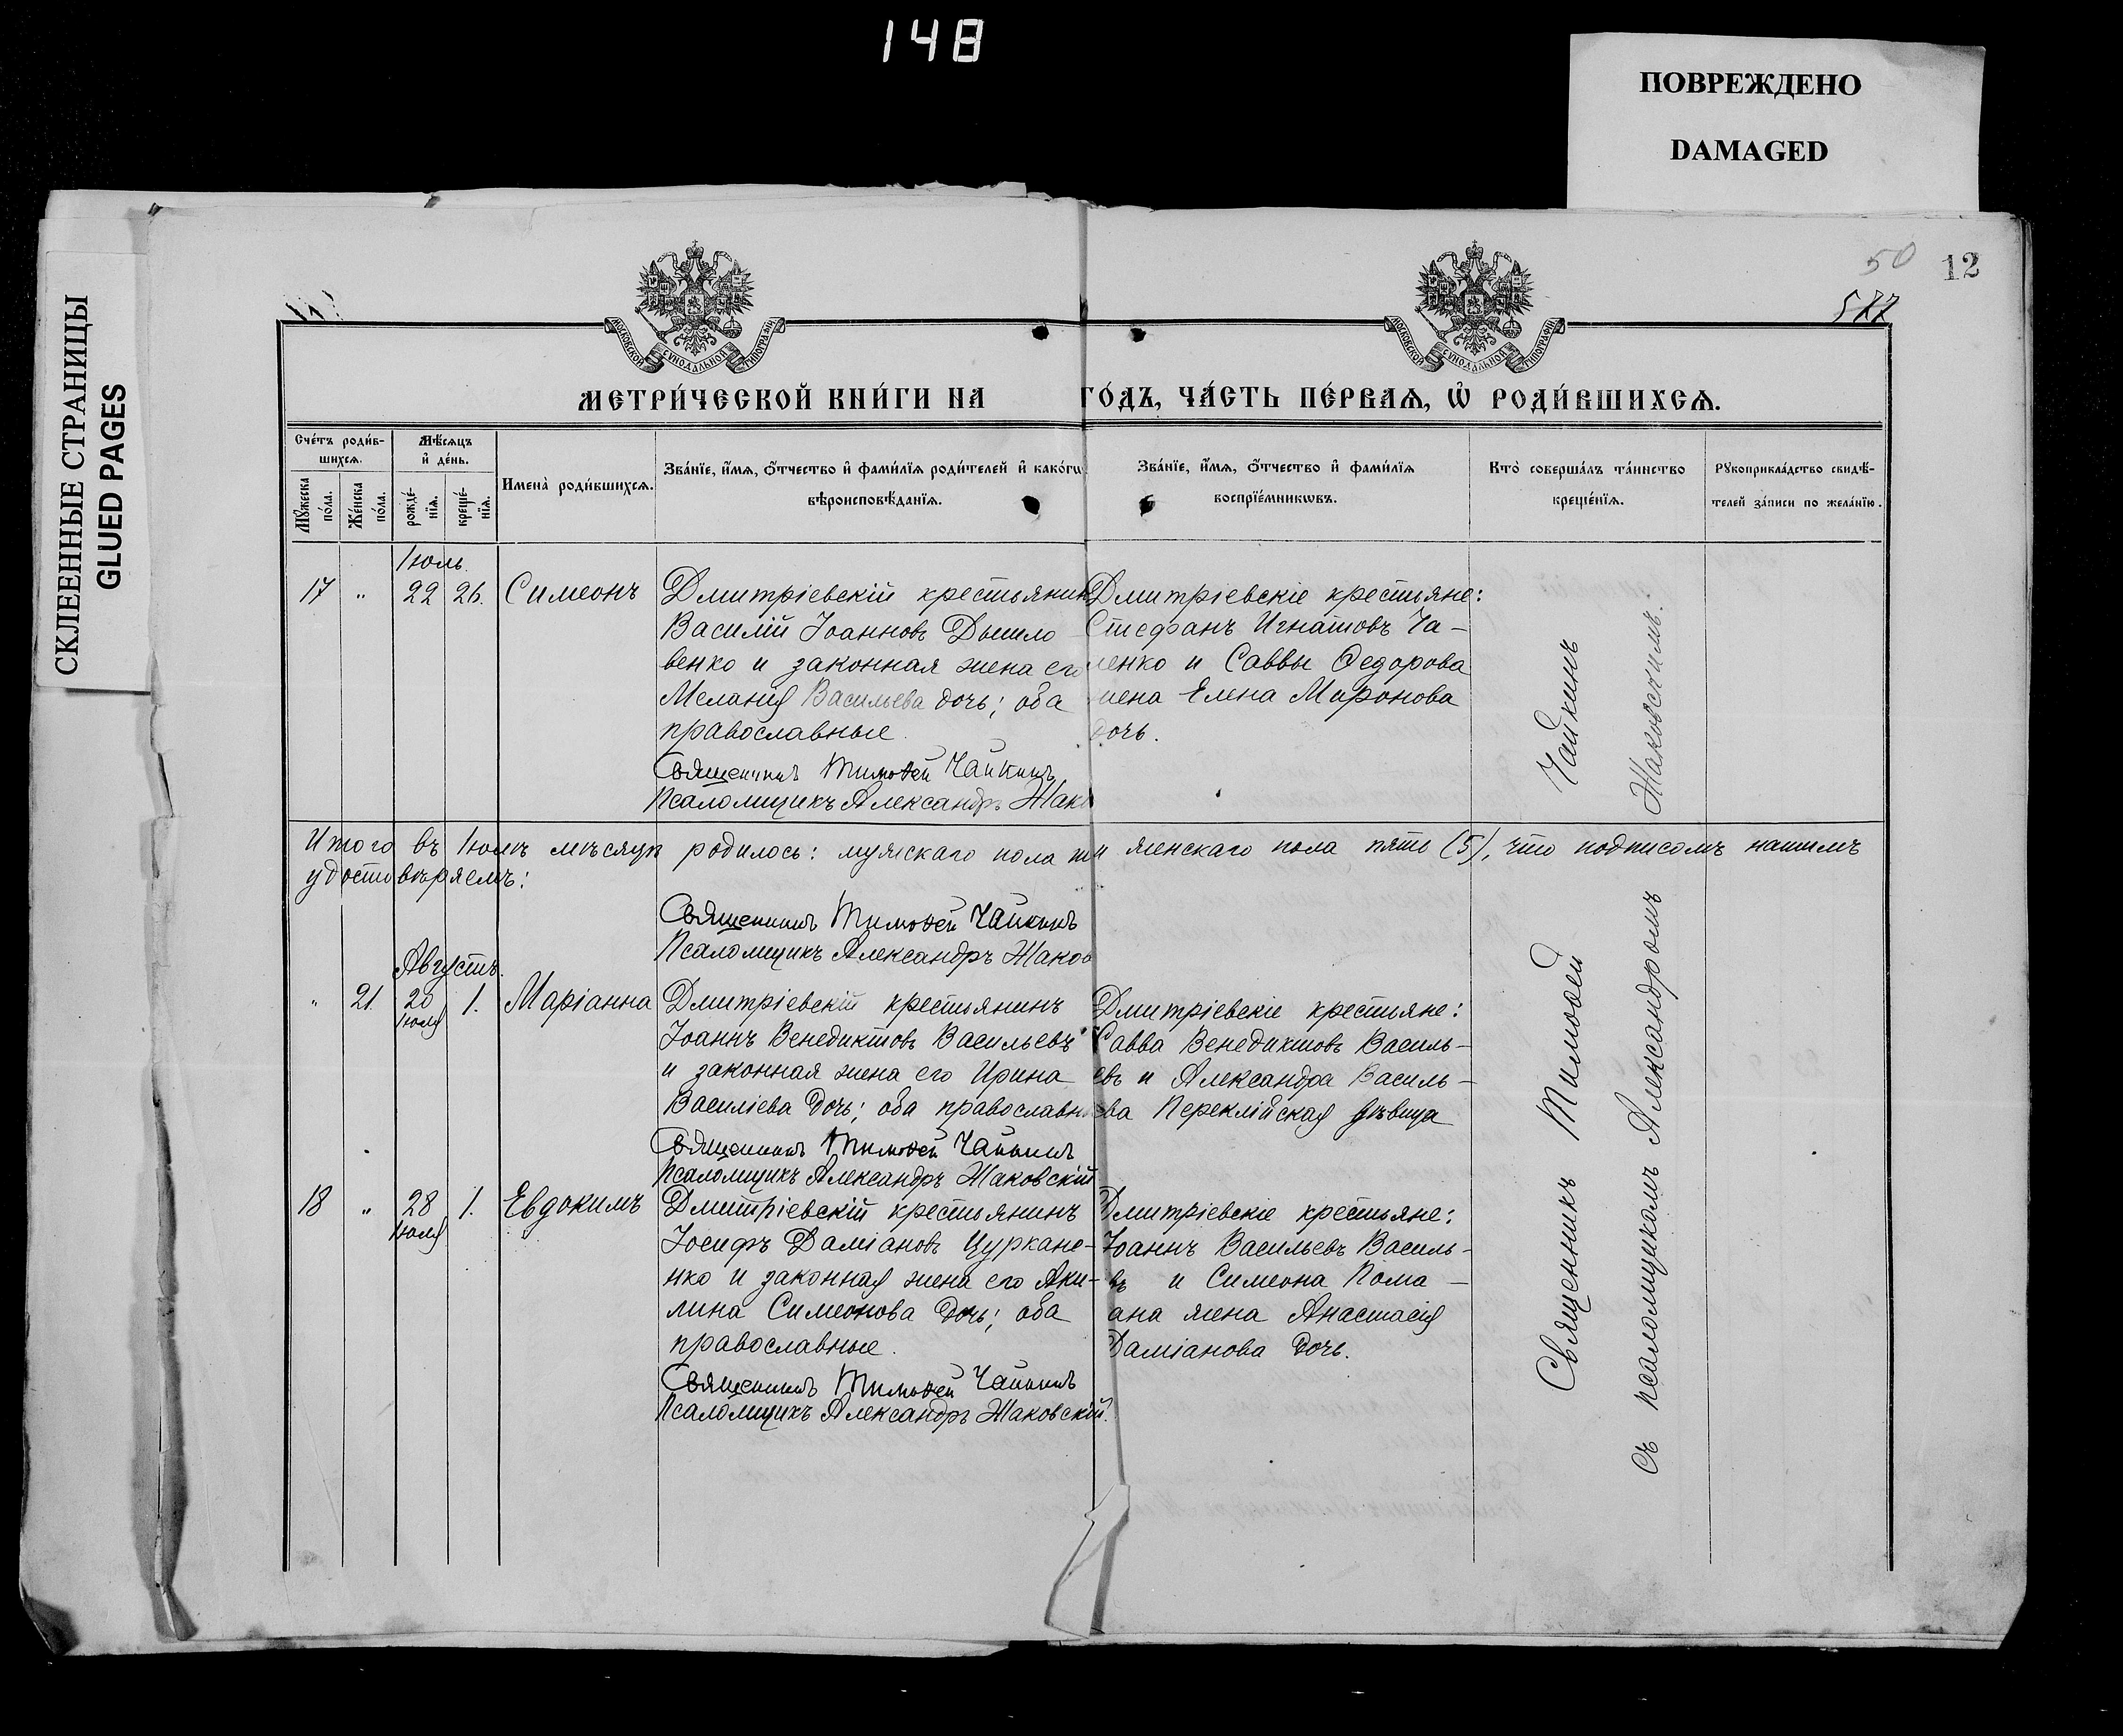 148
ПОВРЕЖДЕНО
DAMAGED
СКЛЕЕННЫЕ СТРАНИЦЫ
GLUED PAGES
50
12
577
МОСКОВСКОЙ СѴНОДАЛЬНОЙ ТИПОГРАФІИ
МОСКОВСКОЙ СѴНОДАЛЬНОЙ ТИПОГРАФІИ
МЕТРИ́ЧЕСКОЙ КНИ́ГИ НА ГО́ДЪ, ЧА́СТЬ ПЕ́РВАѦ, Ѡ҆ РОДИ́ВШИХСѦ.
Сче́тъ роди́в-
шихсѧ.
Мꙋ́жеска
по́ла.
Же́нска
по́ла.
Мѣ́сѧцъ
и҆ де́нь.
рожде́-
нїѧ.
креще́-
нїѧ.
Имена̀ роди́вшихсѧ.
Зва́нїе, и҆́мѧ, ѻ҆́тчество и҆ фами́лїѧ роди́телей и҆ како́гѡ
вѣроисповѣ́данїѧ.
Зва́нїе, и҆́мѧ, ѻ҆́тчество и҆ фами́лїѧ
воспрїе́мникѡвъ.
Кто̀ соверша́лъ та́инство
креще́нїѧ.
Рꙋкоприкла́дство свидѣ́-
телей за́писи по жела́нїю.
Іюль.
17 " 22 26. Симеонъ
Дмитріевскій крестьянин
Василій Іоанновъ Дышло
венко и законная жена его
Меланія Васильева дочь; оба
православные.
Священникъ Тимоѳей Чайкинъ
Псаломщикъ Александръ Жако
Дмитріевскіе крестьяне:
Стефанъ Игнатовъ Ча-
ленко и Саввы Ѳедорова
жена Елена Миронова
дочь.
Итого въ Іюлѣ мѣсяцѣ родилось: мужскаго пола женскаго пола пять (5), что подписомъ нашимъ
удостовѣряемъ:
Священникъ Тимоѳей Чайкинъ
Псаломщикъ Александръ Жаков
Августъ.
" 21. 20 1. Маріанна
Іюля
Дмитріевскій крестьянинъ
Іоаннъ Венедиктовъ Васильевъ
и законная жена его Ирина
Василіева дочь; оба православн
Священникъ Тимоѳей Чайкинъ
Псаломщикъ Александръ Жаковскій
Дмитріевскіе крестьяне:
Савва Венедиктовъ Василь-
евъ и Александра Василь-
ева Переклійская дѣвица
18 " 28 1. Евдокимъ
Іюля
Дмитріевскій крестьянинъ
Іосифъ Даміановъ Цуркано-
нко и законная жена его Аки-
лина Симеонова дочь; оба
православные.
Священникъ Тимоѳей Чайкинъ
Псаломщикъ Александръ Жаковскій.
Дмитріевскіе крестьяне:
Іоаннъ Васильевъ Василь-
въ и Симеона Рома-
ана жена Анастасія
Даміанова дочь.
Священникъ Тимоѳей Чайкинъ
съ псаломщикомъ Александромъ Жаковскимъ.